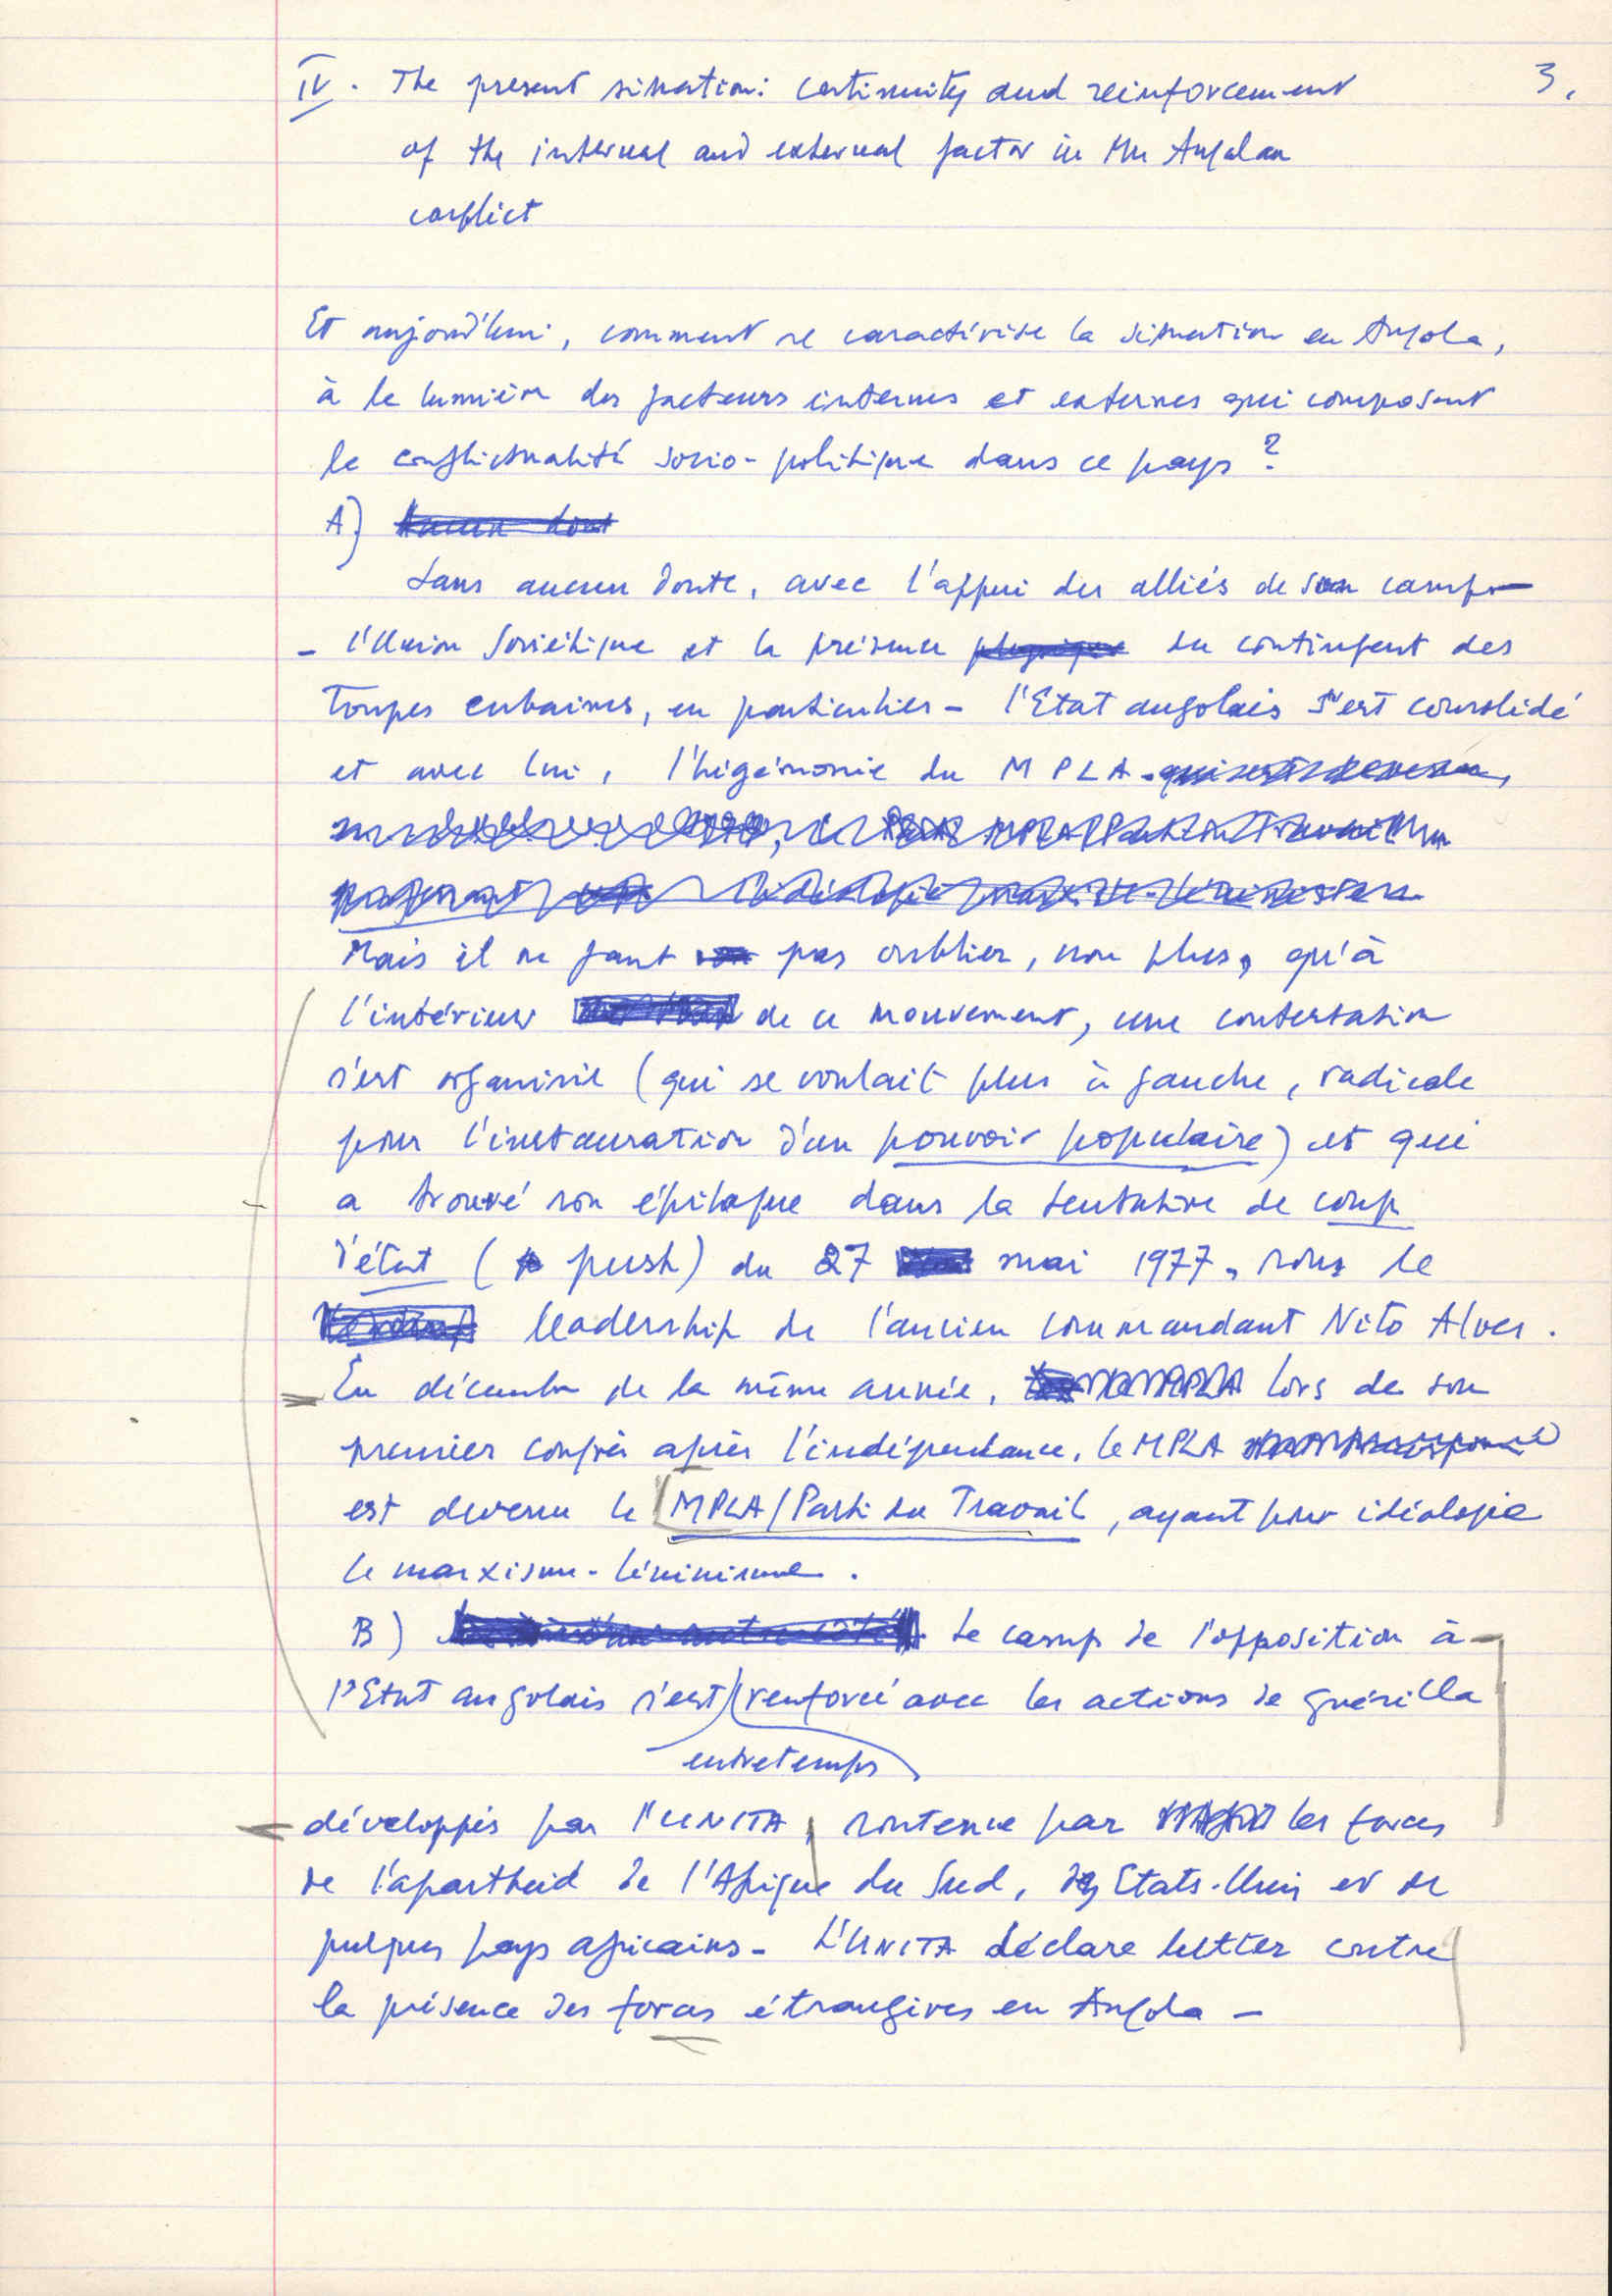 3.
IV. The present situation: continuity and reinforcement
of the internal and external factor in the Angolan
conflict
Et aujourd'hui, comment se caractérise la situation en Angola,
à la lumière des facteurs internes et externes qui composent
la conflictualité socio-politique dans ce pays ?
A) Aucun dout
Sans aucun doute, avec l'appui des alliés de son camp
- l'Union Soviétique et la présence physique du contingent des
troupes cubaines, en particulier - l'Etat angolais s'est consolidé
et avec lui, l'hégémonie du MPLA. qui est devenu,
MPLA/Parti du Travail
l'idéologie marxiste-léniniste
Mais il ne faut pas oublier, non plus, qu'à
l'intérieur de ce mouvement, une contestation
s'est organisée (qui se voulait plus à gauche, radicale
pour l'instauration d'un pouvoir populaire) et qui
a trouvé son épilogue dans la tentative de coup
d'état (push) du 27 mai 1977, sous le
leadership de l'ancien commandant Nito Alves.
En décembre de la même année, lors de son
premier congrès après l'indépendance, le MPLA
est devenu le MPLA/Parti du Travail, ayant pour idéologie
le marxisme-léninisme.
B) Le camp de l'opposition à
l'Etat angolais s'est renforcé avec les actions de guérilla
entretemps
développés par l'UNITA, soutenue par les forces
de l'apartheid de l'Afrique du Sud, des Etats-Unis et de
quelques pays africains - L'UNITA déclare lutter contre
la présence des forces étrangères en Angola -